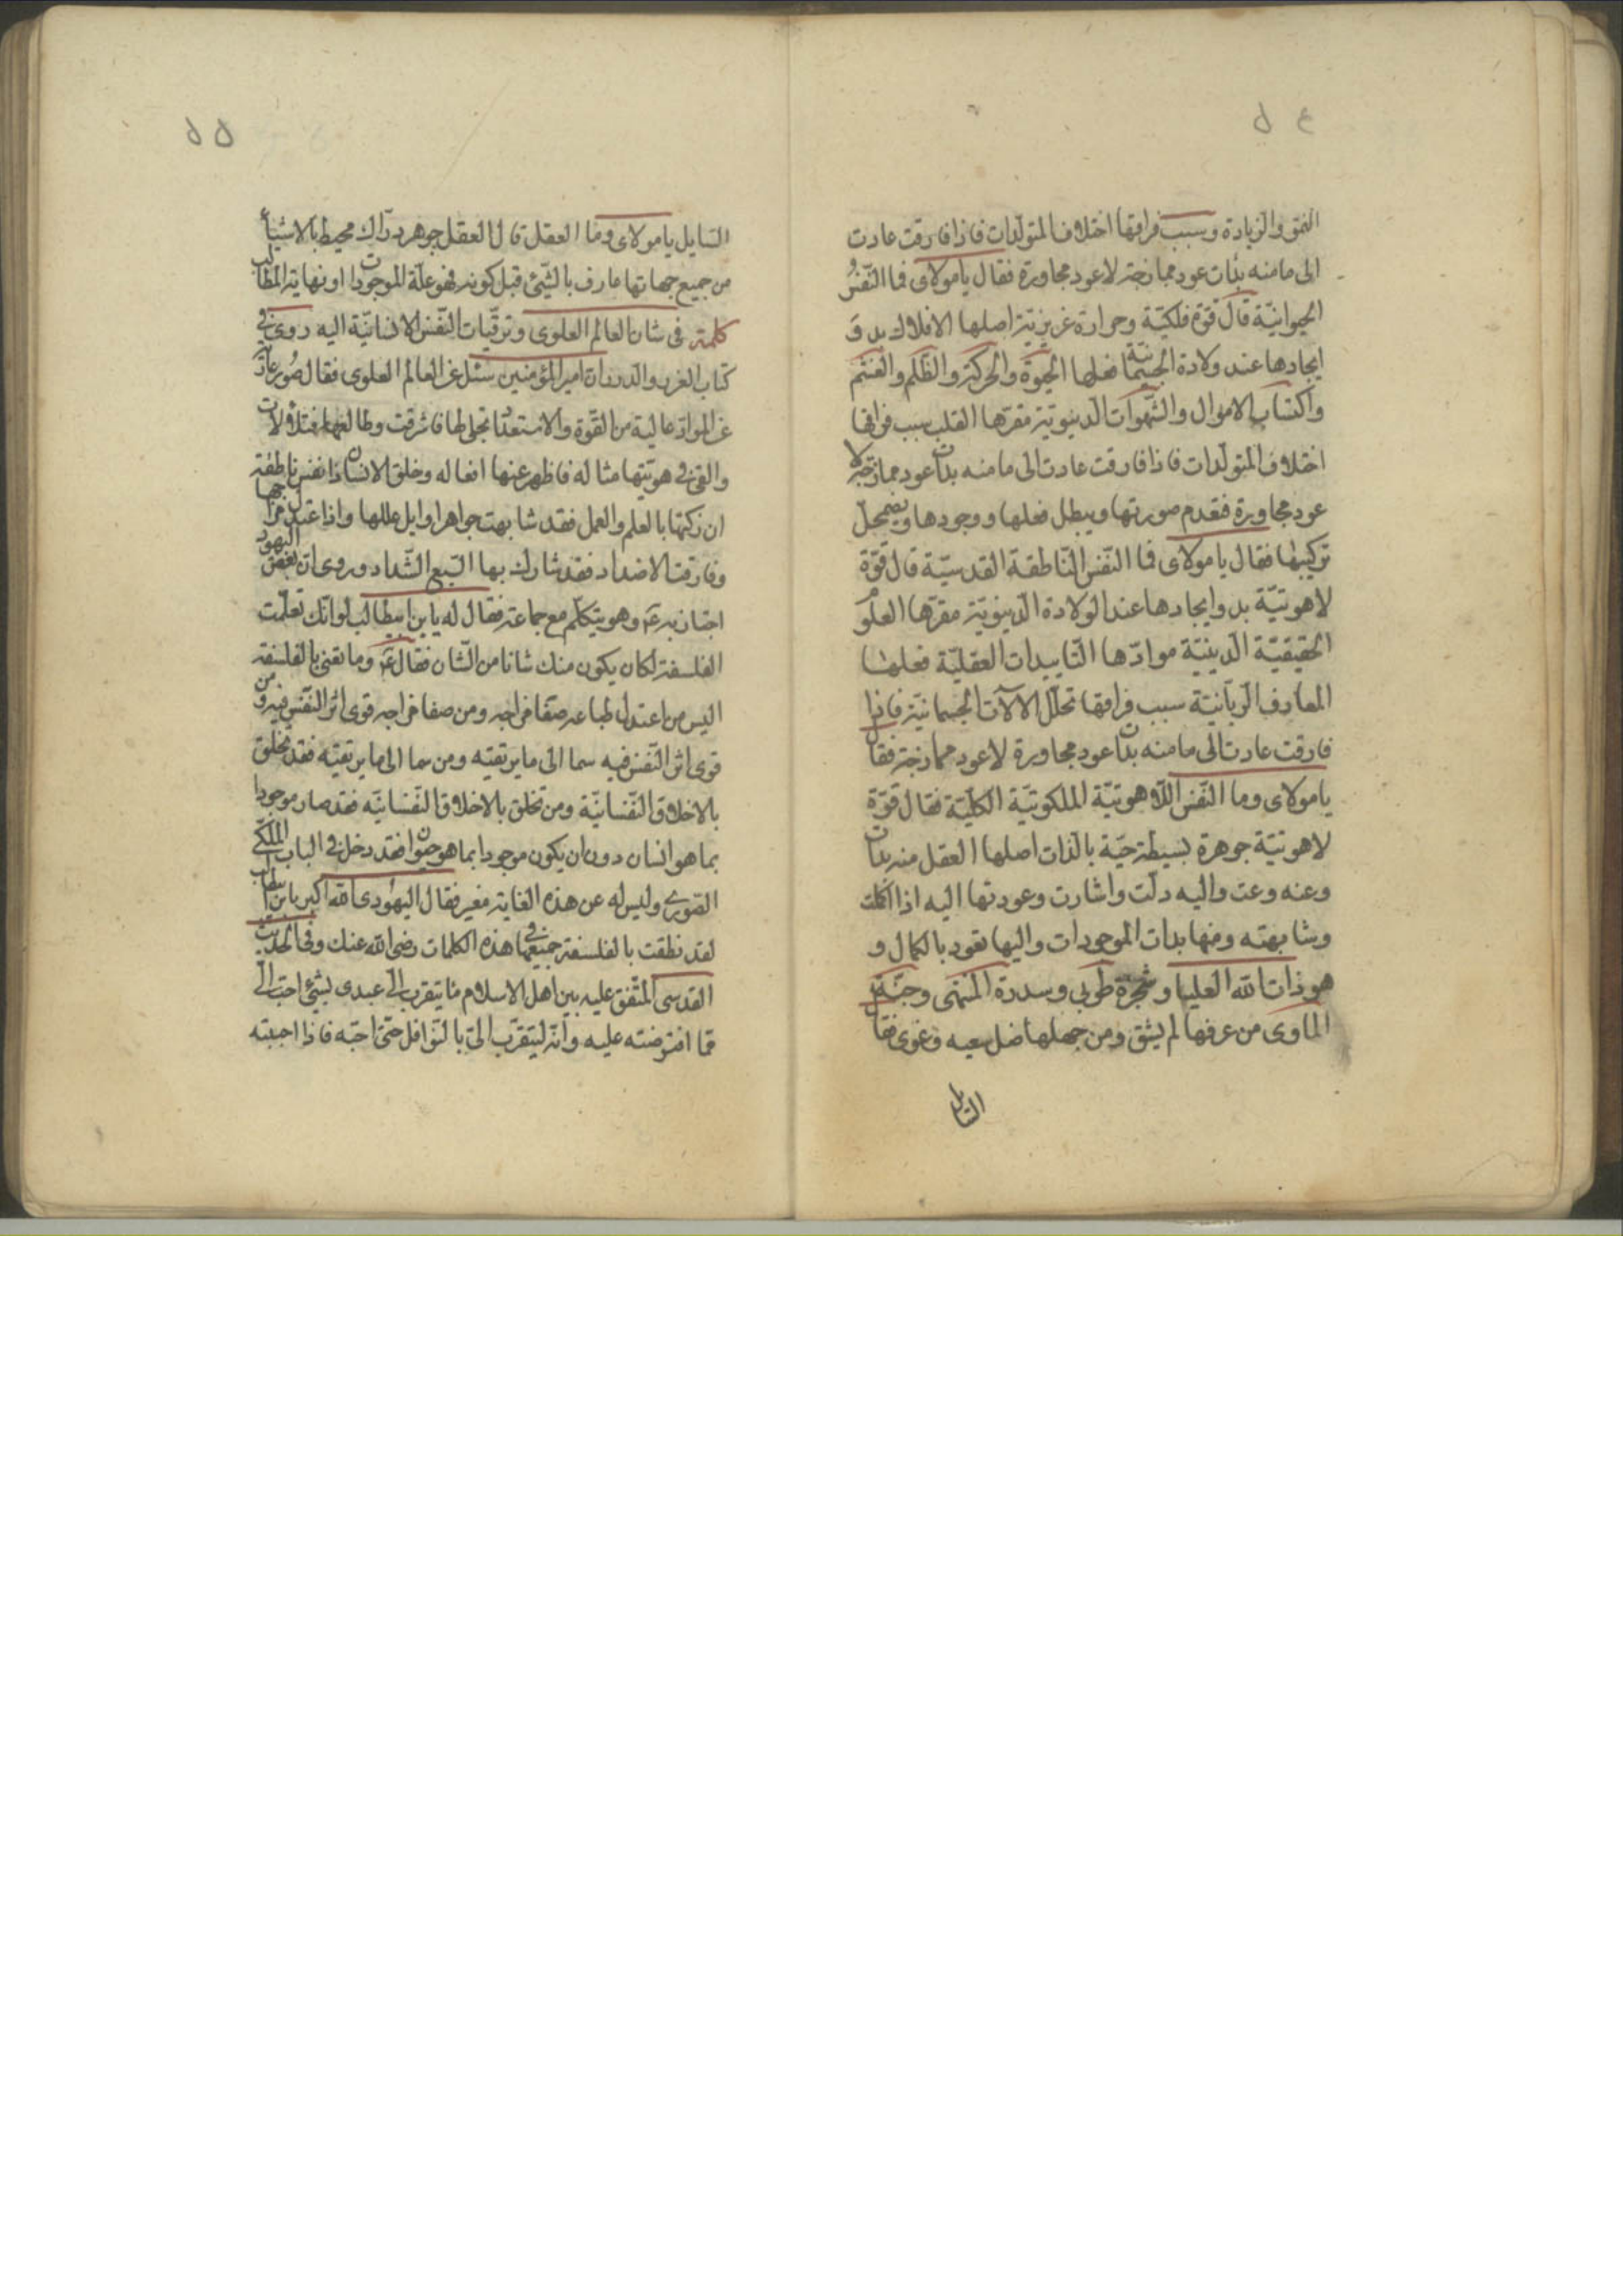 ٥٤
النمو والزيادة وسبب فراقها اختلاف المتولدات فاذا فارقت عادت
الى ما منه بدات عود ممازجة لا عود مجاورة فقال يا مولاى فما النفس
الحيوانية قال قوة فلكية وحرارة غريزية اصلها الافلاك بدو
ايجادها عند ولادة الجسمانية فعلها الحيوة والحركة والظلم والغشم
واكتساب الاموال والشهوات الدنيوية مقرها القلب سبب فراقها
اختلاف المتولدات فاذا فارقت عادت الى ما منه بدات عود ممازجة لا
عود مجاورة فتعدم صورتها ويبطل فعلها ووجودها ويضمحل
تركيبها فقال يا مولاى فما النفس الناطقة القدسية قال قوة
لاهوتية بدو ايجادها عند الولادة الدنيوية مقرها العلوم
الحقيقية الدينية موادها التاييدات العقلية فعلها
المعارف الربانية سبب فراقها تحلل الآلات الجسمانية فاذا
فارقت عادت الى ما منه بدات عود مجاورة لا عود ممازجة فقال
يا مولاى وما النفس اللاهوتية الملكوتية الكلية فقال قوة
لاهوتية جوهرة بسيطة حية بالذات اصلها العقل منه بدات
وعنه وعت واليه دلت واشارت وعودتها اليه اذا اكملت
وشابهته ومنها بدات الموجودات واليها تعود بالكمال و
هو ذات الله العليا وشجرة طوبى وسدرة المنتهى وجنة
الماوى من عرفها لم يشق ومن جهلها ضل سعيه وغوى فقال
السايل
٥٥
السايل يا مولاى وما العقل قال العقل جوهر دراك محيط بالاشياء
من جميع جهاتها عارف بالشئ قبل كونه فهو علة الموجودات ونهاية المطالب
كلمة فى شان العالم العلوى وترقيات النفس الانسانية اليه روى فى
كتاب الغرر والدرر ان امير المؤمنين سئل عن العالم العلوى فقال صور عارية
عن المواد عالية من القوة والاستعداد تجلى لها فاشرقت وطالعها فتلألات
والقى فى هويتها مثاله فاظهر عنها افعاله وخلق الانسان ذا نفس ناطقة
ان زكيتها بالعلم والعمل فقد شابهت جواهر اوايل عللها واذا اعتدل مزاجها
وفارقت الاضداد فقد شارك بها السبع الشداد وروى ان بعض اليهود
اجتاز به ع‍ وهو يتكلم مع جماعة فقال له يا بن ابيطالب لو انك تعلمت
الفلسفة لكان يكون منك شانا من الشان فقال ع‍ وما تعنى بالفلسفة
اليس من اعتدل طباعه صفا مزاجه ومن صفا مزاجه قوى اثر النفس فيه ومن
قوى اثر النفس فيه سما الى ما يرتقيه ومن سما الى ما يرتقيه فقد تخلق
بالاخلاق النفسانية ومن تخلق بالاخلاق النفسانيه فقد صار موجودا
بما هو انسان دون ان يكون موجودا بما هو حيوان فقد دخل فى الباب الملكى
الصورى وليس له عن هذه الغاية مغير فقال اليهودى الله اكبر يا بن ابيطالب
لقد نطقت بالفلسفة جميعها فى هذه الكلمات رضى الله عنك وفى الحديث
القدسى المتفق عليه بين اهل الاسلام ما يتقرب الى عبدى بشئ احب الى
مما افترضته عليه وانه ليتقرب الى بالنوافل حتى احبه فاذا احببته